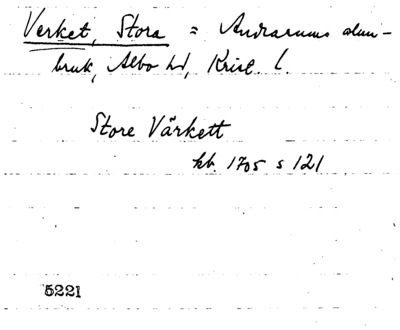 Verket, Stora = Andrarums alun-
bruk, Albo hd, Krist. l.
Store Värkett
kb. 1705 s 121
5221